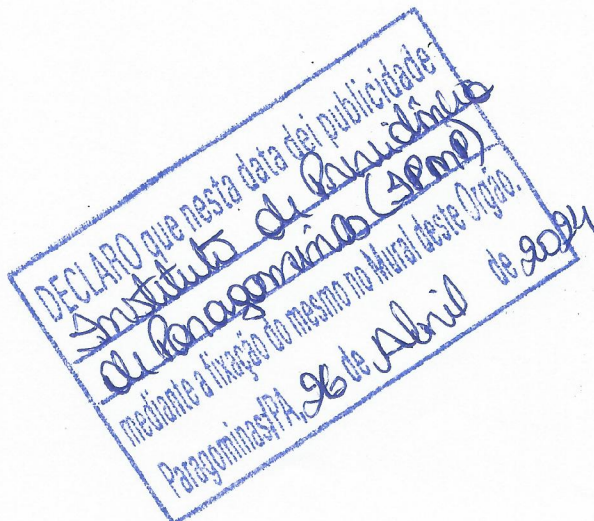 DECLARO que nesta data dei publicidade
Instituto de Previdência
de Paragominas (IPMP)
mediante a fixação do mesmo no Mural deste Orgão.
Paragominas/PA, 26 de Abril de 2024